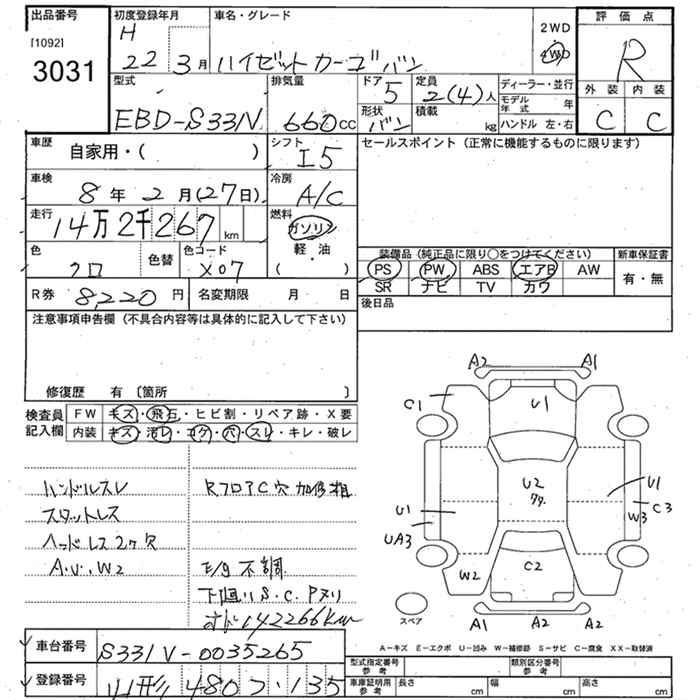 出品番号
[1092]
3031
初度登録年月
H
22 3月
車名・グレード
ハイゼットカーゴバン
2WD
4WD
評価点
R
外装 内装
C C
型式
EBD-S331V
排気量
660cc
ドア
5
形状
バン
定員
2(4)人
積載
kg
ディーラー・並行
モデル年式 年
ハンドル 左・右
車歴
自家用・( )
シフト
I5
セールスポイント (正常に機能するものに限ります)
車検
8年 2月(27日)
冷房
A/C
走行
14万2千267km
燃料
ガソリン
軽・油
( )
色
クロ
色替
色コード
X07
装備品 (純正品に限り○をつけてください)
PS PW ABS エアB AW
SR ナビ TV カワ
新車保証書
有・無
後日品
R券 8220円
名変期限 月 日
注意事項申告欄 (不具合内容等は具体的に記入して下さい)
修復歴 有 〔箇所 〕
検査員記入欄
FW キズ・飛石・ヒビ割・リペア跡・X要
内装 キズ・汚レ・コゲ・穴・スレ・キレ・破レ
ハンドルスレ
スタットレス
ヘッドレス2ケ欠
A.U.W2
RフロアC穴 加修粗
E/g不調
下廻りS.C.Pヌリ
142266km
A2 A1
C1
U1
U2
U1
C3
W3
U1
UA3
W2
C2
スペア
A1 A2 A2
A-キズ E-エクボ U-凹み W-補修跡 S-サビ C-腐食 XX-取替済
車台番号
S331V-0035265
登録番号
山形 480 135
型式指定番号 参考
類別区分番号 参考
車庫証明用 参考
長さ cm 幅 cm 高さ cm